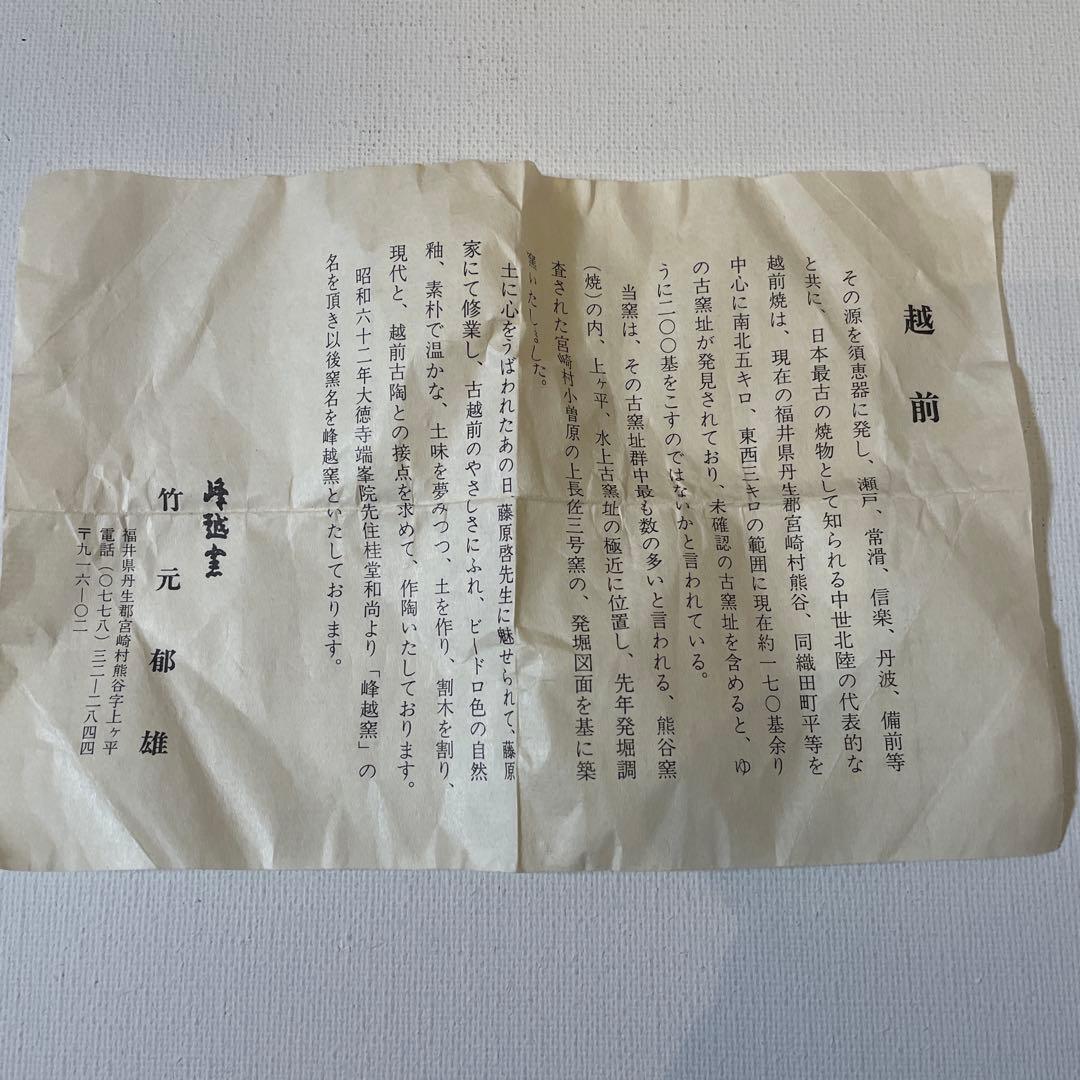 越前
その源を須恵器に発し、瀬戸、常滑、信楽、丹波、備前等
と共に、日本最古の焼物として知られる中世北陸の代表的な
越前焼は、現在の福井県丹生郡宮崎村熊谷、同織田町平等を
中心に南北五キロ、東西三キロの範囲に現在約一七〇基余り
の古窯址が発見されており、未確認の古窯址を含めると、ゆ
うに二〇〇基をこすのではないかと言われている。
当窯は、その古窯址群中最も数の多いと言われる、熊谷窯
(焼)の内、上ヶ平、水上古窯址の極近に位置し、先年発掘調
査された宮崎村小曽原の上長佐三号窯の、発掘図面を基に築
窯いたしました。
土に心をうばわれたあの日、藤原啓先生に魅せられて、藤原
家にて修業し、古越前のやさしさにふれ、ビードロ色の自然
釉、素朴で温かな、土味を夢みつつ、土を作り、割木を割り、
現代と、越前古陶との接点を求めて、作陶いたしております。
昭和六十二年大徳寺端峯院先住桂堂和尚より「峰越窯」の
名を頂き以後窯名を峰越窯といたしております。
峰越窯
竹元郁雄
福井県丹生郡宮崎村熊谷字上ヶ平
電話(〇七七八)三二―二八四四
〒九一六―〇二